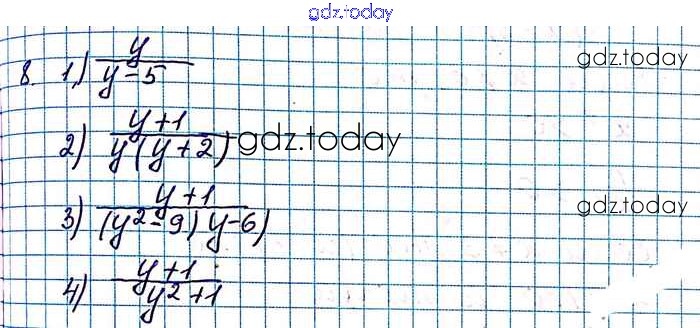 gdz.today
8. 1) y / (y - 5)
gdz.today
2) y + 1 / y (y + 2)
gdz.today
3) y + 1 / (y² - 9) y - 6)
gdz.today
4) y + 1 / y² + 1